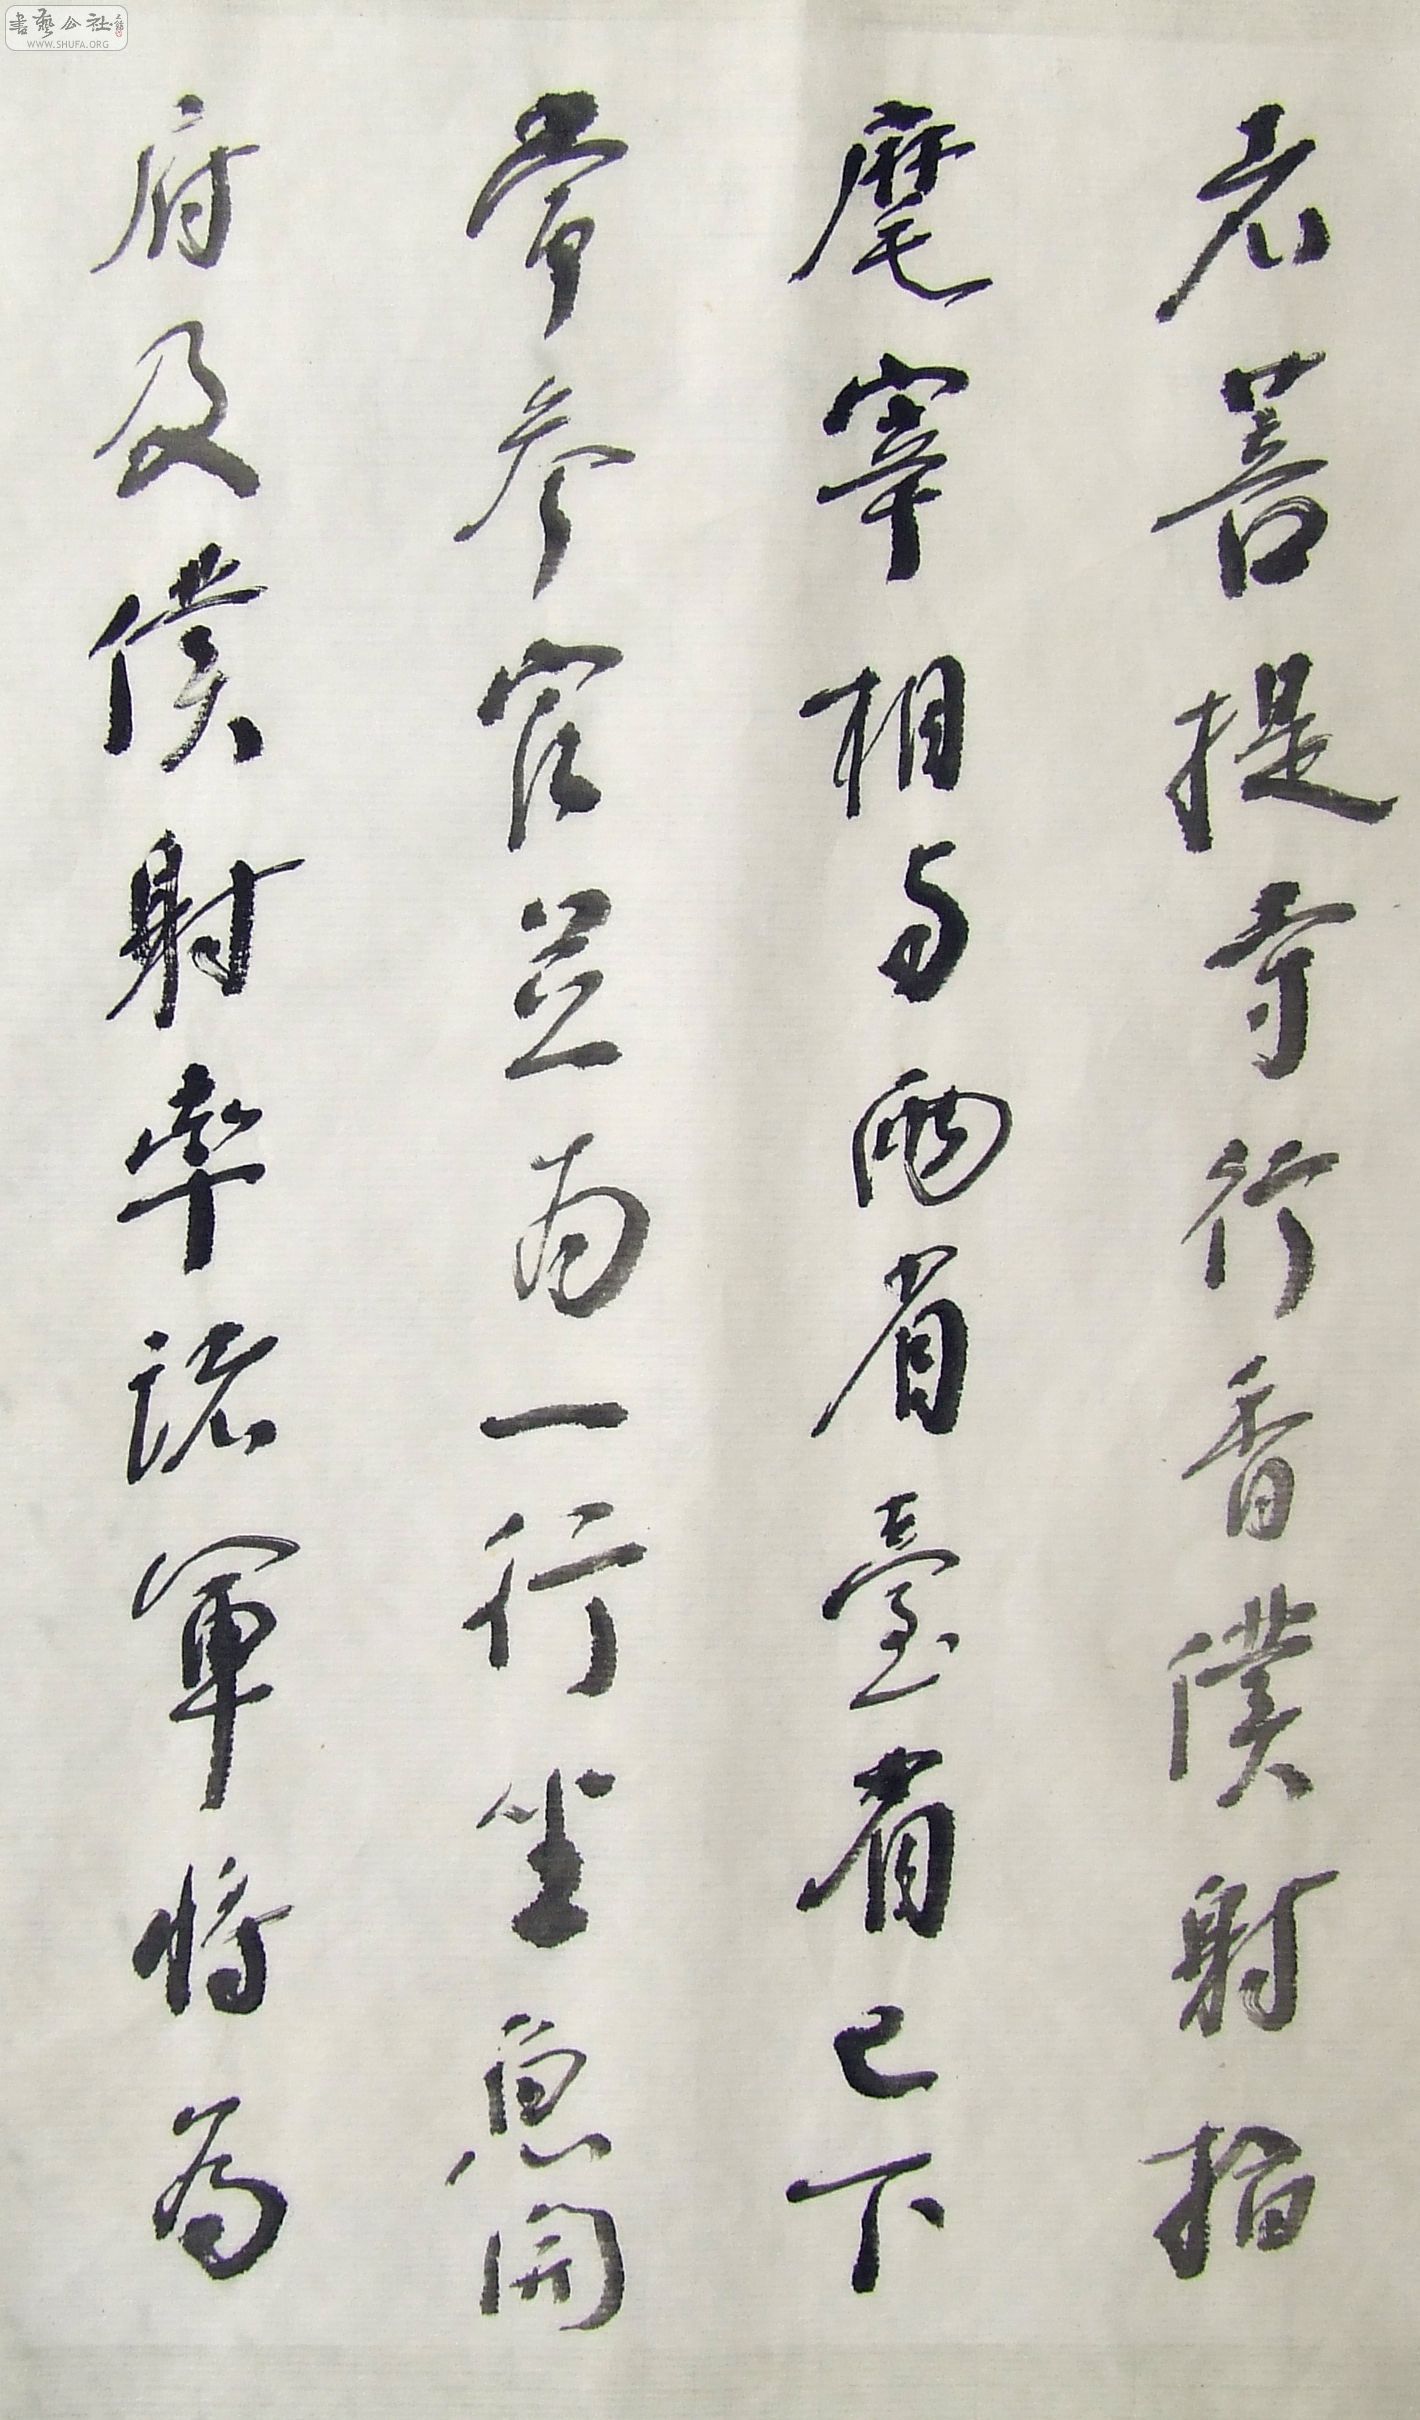 書藝公社
WWW.SHUFA.ORG
者菩提寺行香僕射指
麾宰相与兩省臺省已下
常參官並為一行坐魚開
府及僕射率諸軍將為